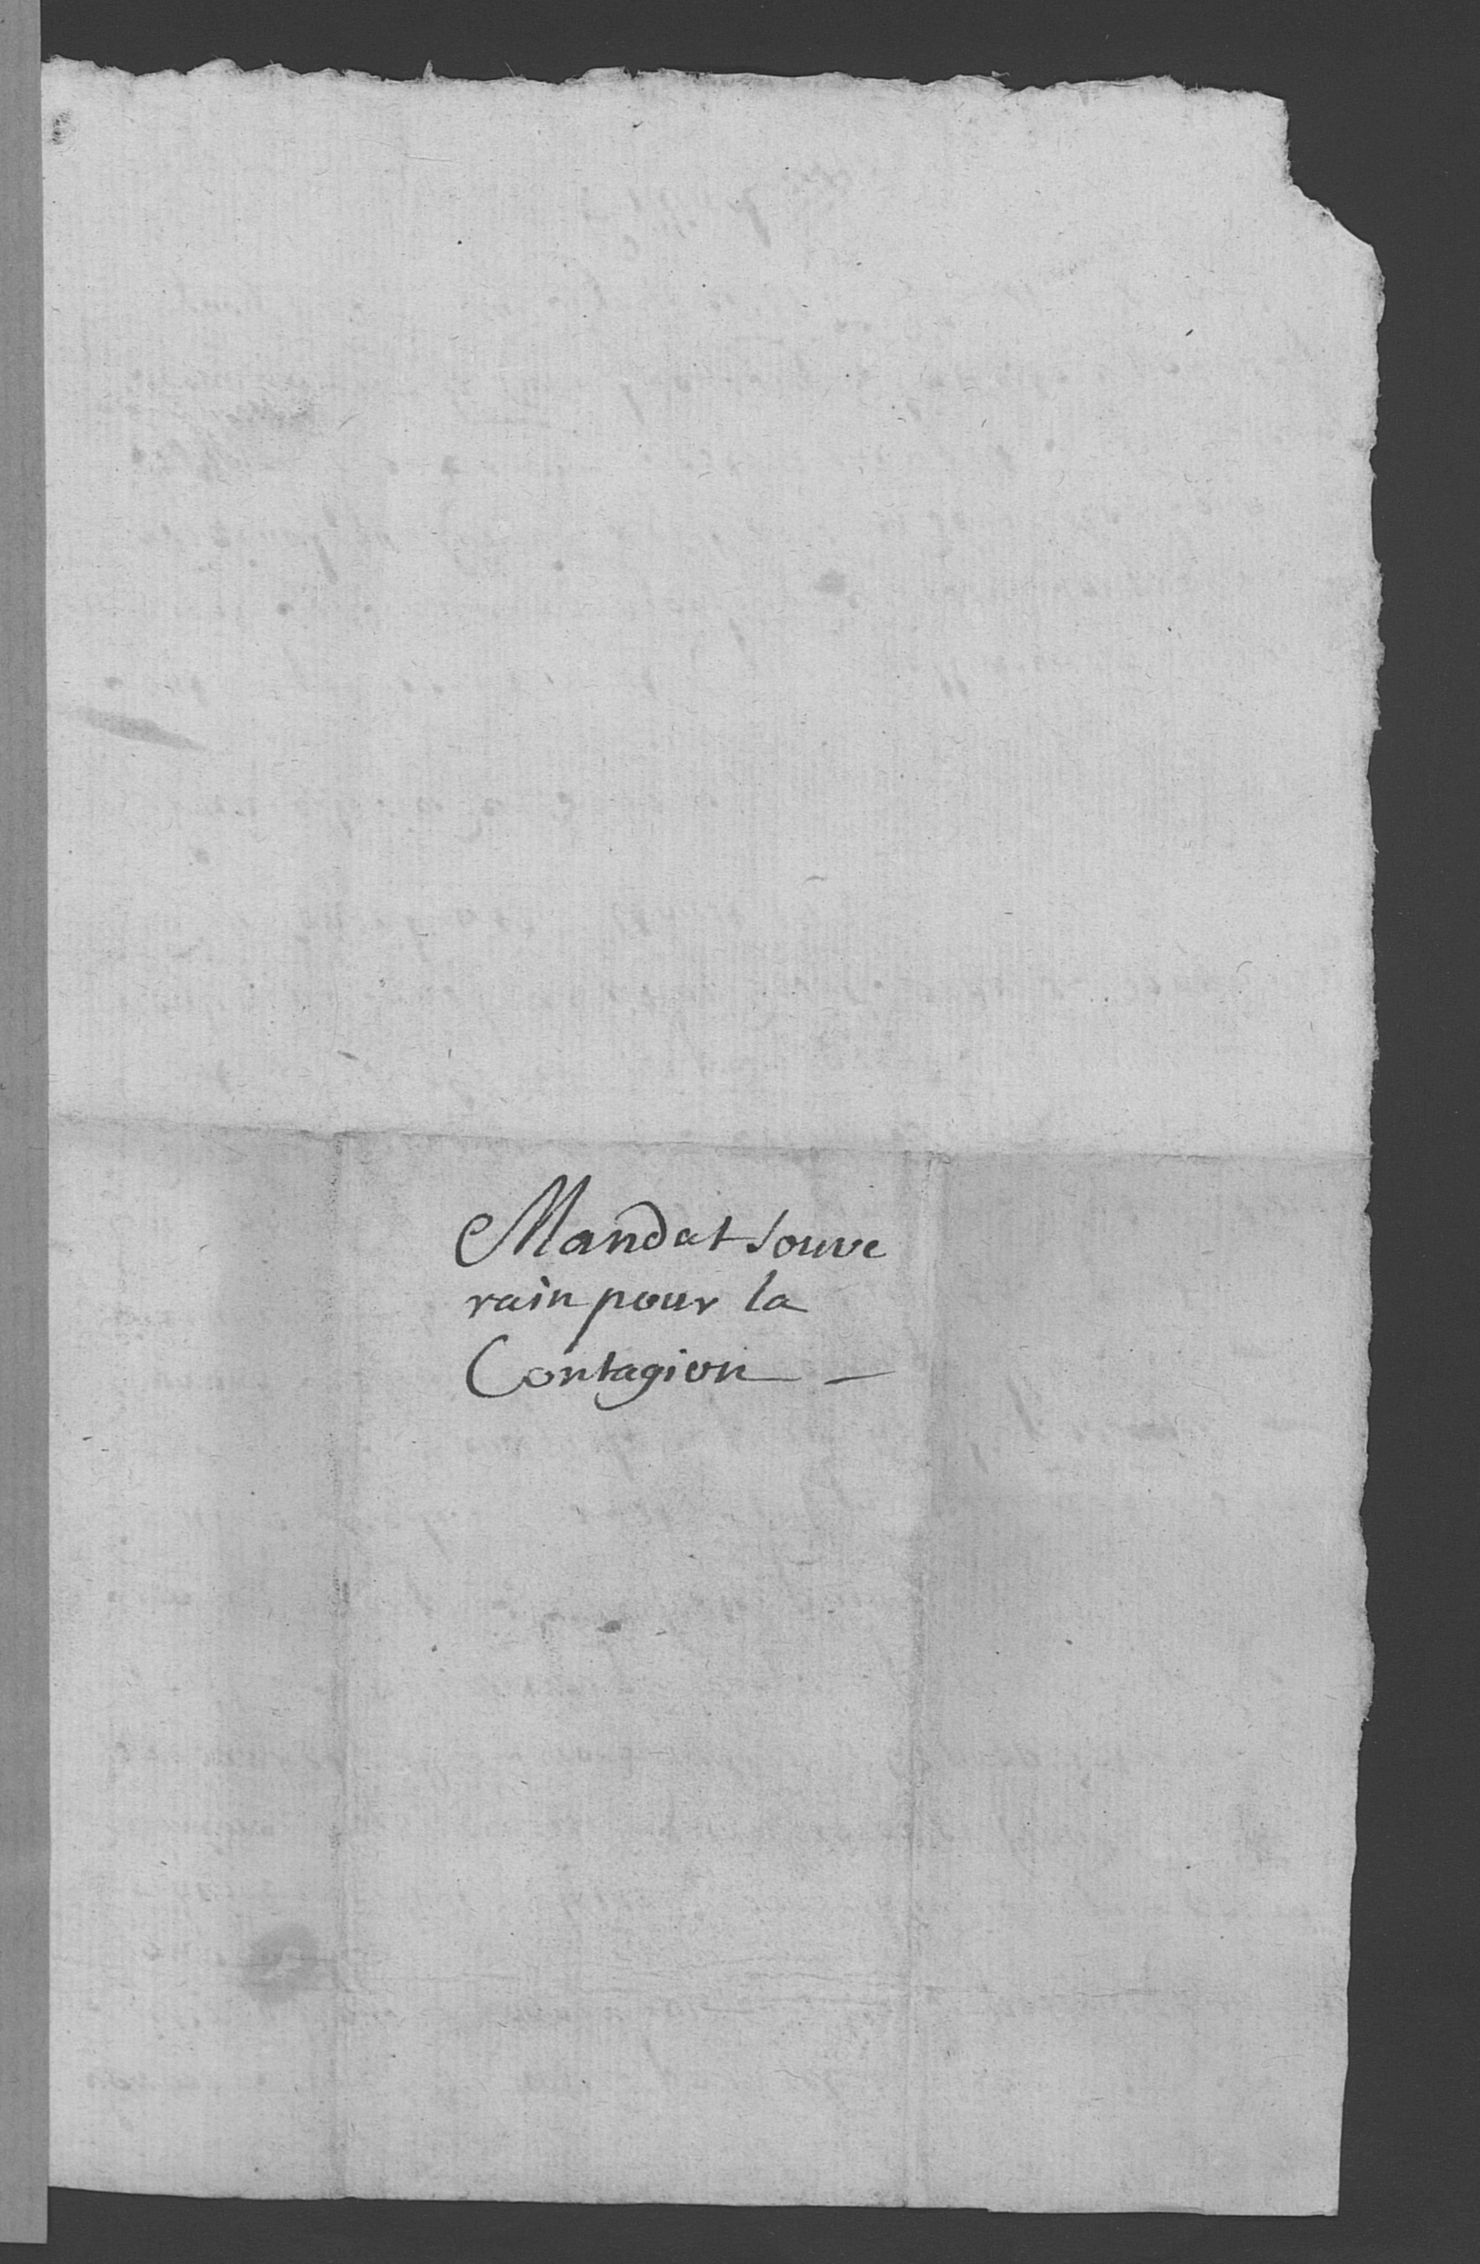 Mandat souve
rain pour la
Contagion –